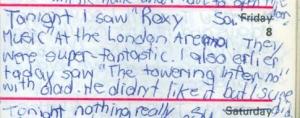 Tonight I saw "Roxy
Friday
Music" At the London Arena. They
8
were super-fantastic. I also erlier
today saw "The towering Inferno"
with dad. He didn't like it but I sure
Tonight nothing really
Saturday